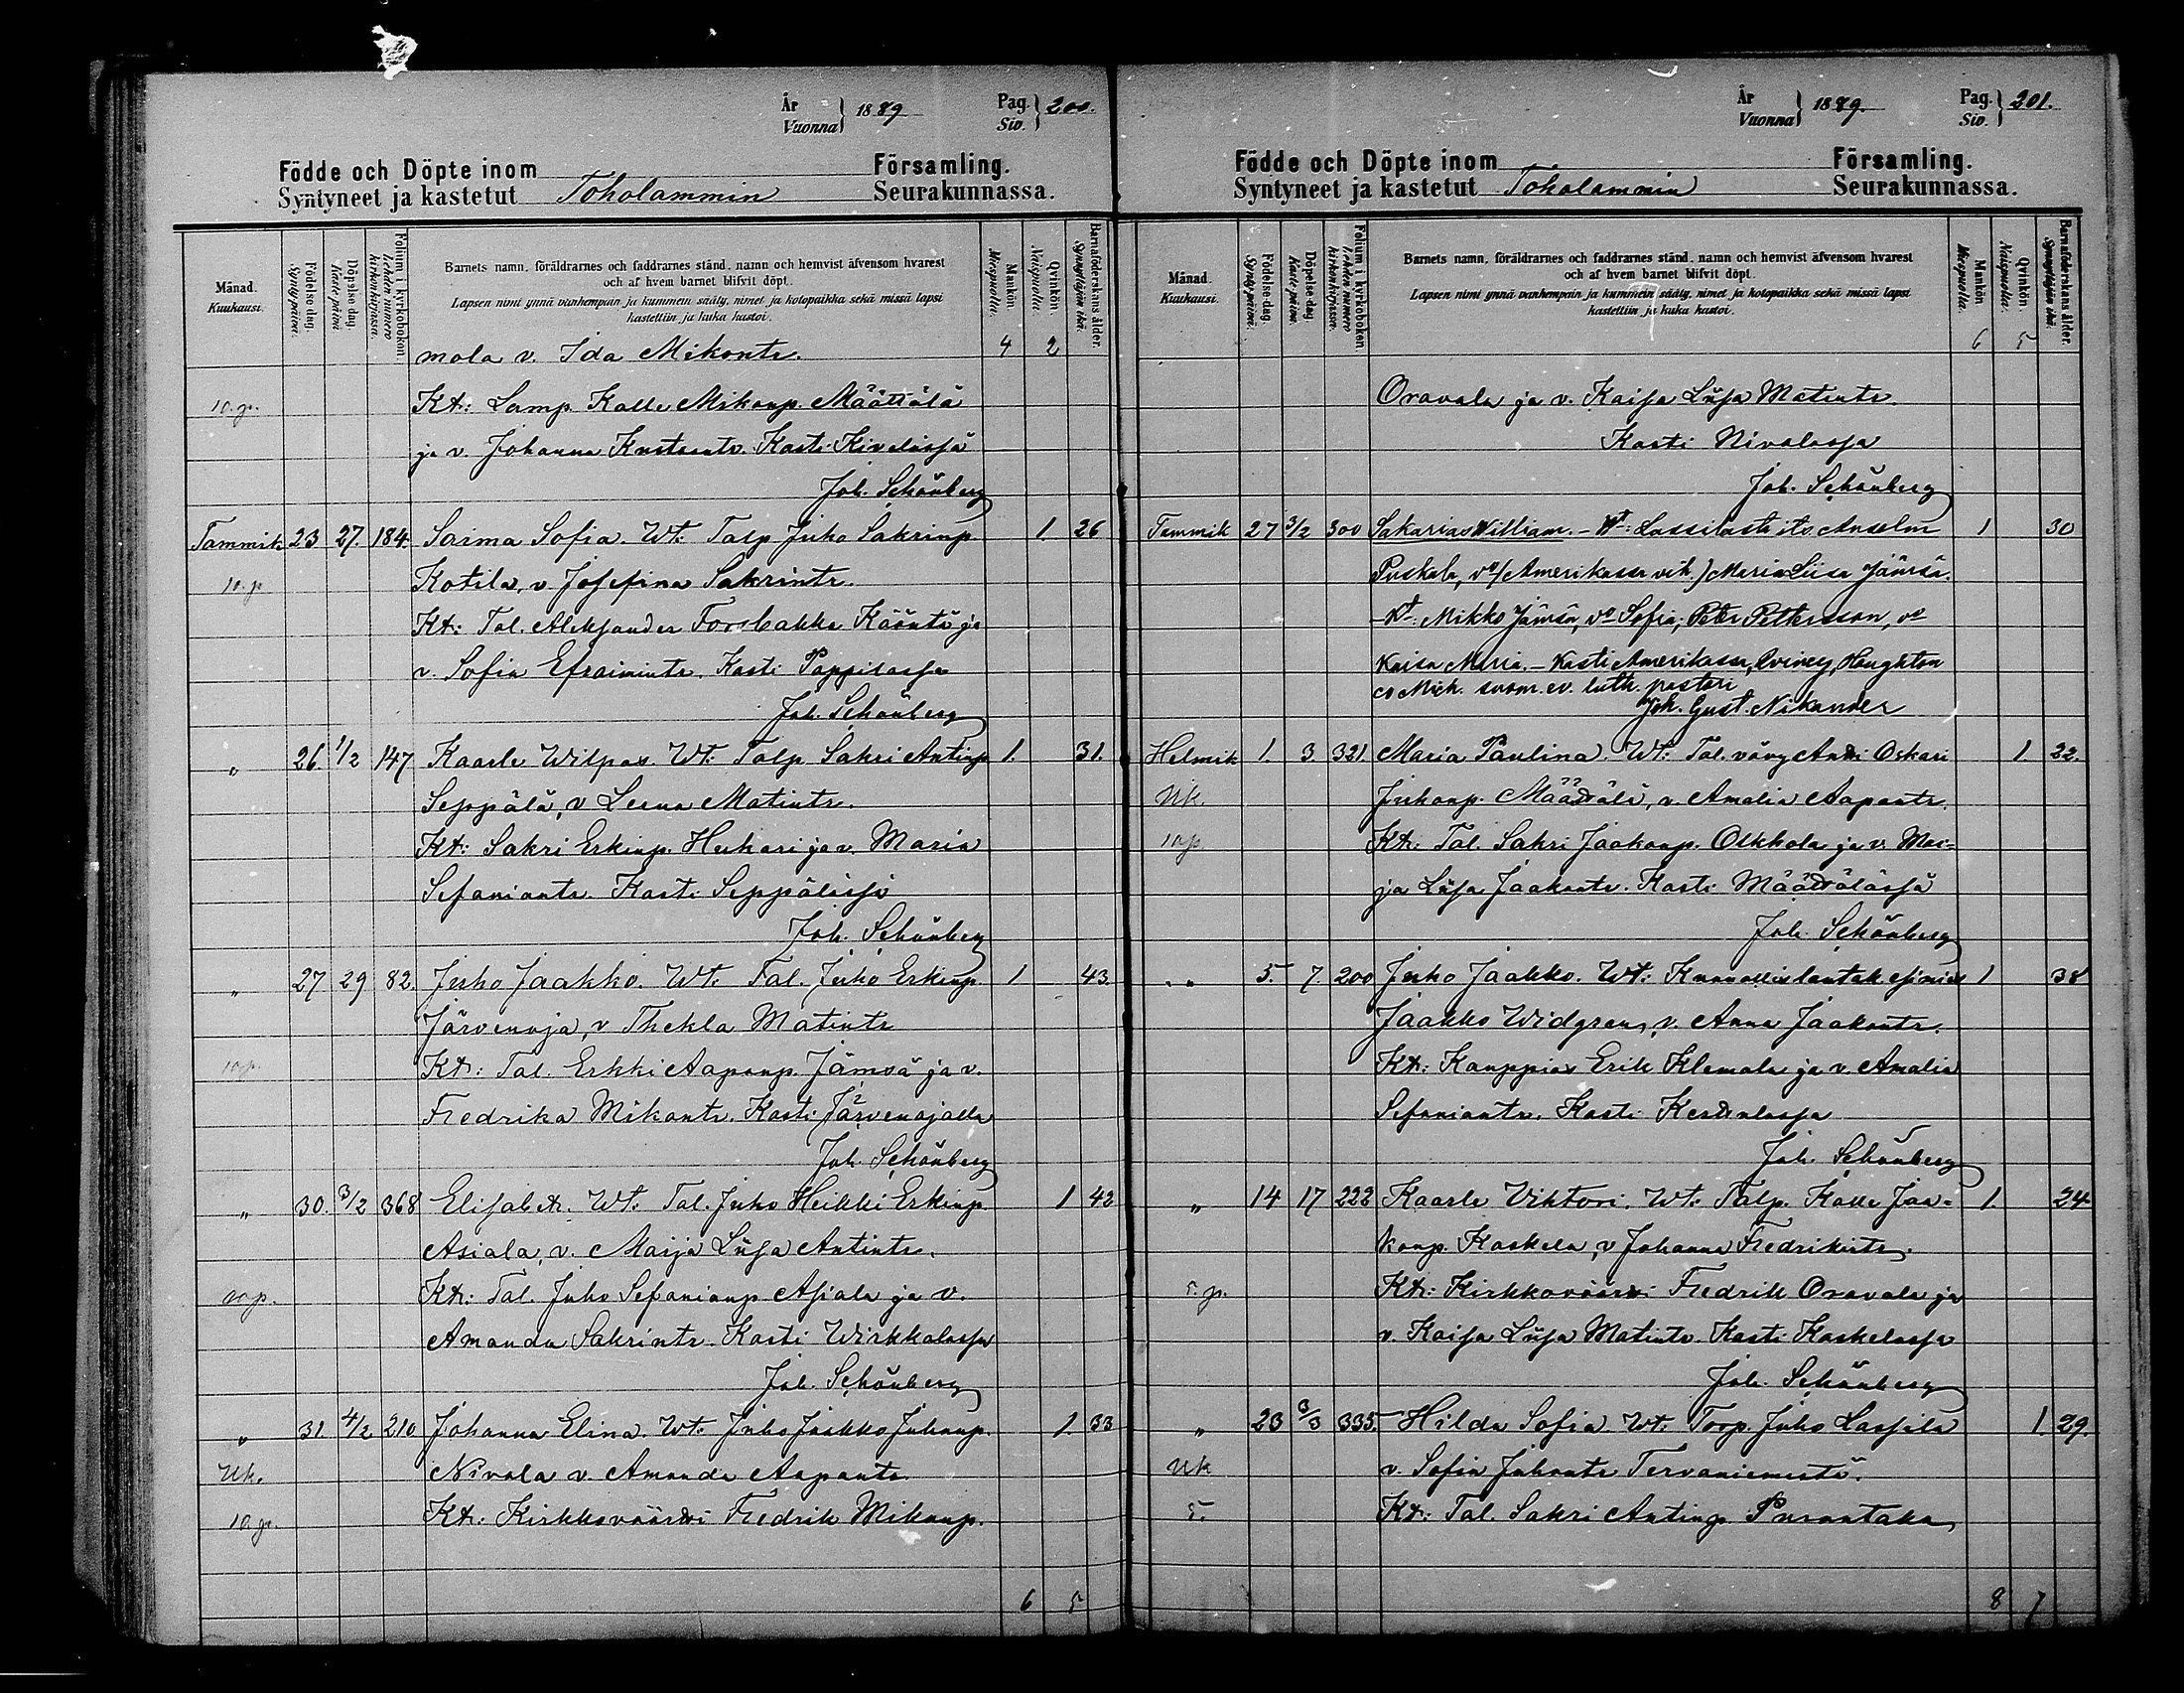 År
Vuonna } 1889 Pag.
Siv. } 200.
Födde och Döpte inom Församling.
Syntyneet ja kastetut Toholammin Seurakunnassa.
Månad.
Kuukausi.
Födelse-dag.
Synty-päivä.
Döpelse-dag.
Kaste-päivä.
Folium i kyrkoboken.
Lehden numero kirkonkirjassa.
Barnets namn, föräldrarnes och faddrarnes stånd, namn och hemvist äfvensom hvarest
och af hvem barnet blifvit döpt.
Lapsen nimi ynnä vanhempain ja kummein sääty, nimet ja kotopaikka sekä missä lapsi
kastettiin ja kuka kastoi.
Mankön.
Miespuolia.
Qvinkön.
Naispuolia.
Barnaföderskans ålder.
Synnyttäjän ikä.
mola v. Ida Mikontr. 4 2
10. p. Kt: Lamp. Kalle Mikonp. Määttälä
ja v. Johanna Kustaantr. Kasti Kivelässä
Joh. Schönberg
Tammik. 23 27. 184. Saima Sofia. Wt: Talp Juho Sakrinp 1 26
10. p Kotila, v. Josefina Sakrintr.
Kt: Tal. Aleksander Forsbakka Kääntä ja
v. Sofia Efraimintr. Kasti Pappilassa
Joh. Schönberg
" 26. 1/2 147 Kaarle Wilpas Wt: Talp Sakri Antinp 1. 31.
Seppälä, v Leena Matintr.
Kt: Sakri Erkinp. Huhari ja v. Maria
Sefaniantr. Kasti Seppälässä
Joh. Schönberg
" 27 29 82. Juho Jaakko. Wt: Tal. Juho Erkinp. 1 43.
Järvenoja, v Thekla Matintr
10 p. Kt: Tal. Erkki Aaponp. Jämsä ja v.
Fredrika Mikontr. Kasti Järvenojalla
Joh. Schönberg
" 30. 3/2 368 Elisabet. Wt: Tal. Juho Heikki Erkinp 1 42
Asiala, v. Maija Liisa Antintr.
10 p. Kt: Tal. Juho Sefanianp Asiala ja v.
Amanda Sakrintr. Kasti Wirkkalassa
Joh. Schönberg
" 31. 4/2 210 Johanna Elina. Wt: Juho Jaakko Juhonp. 1. 33
Uk. Nivala v. Amanda Aapontr.
10. p. Kt: Kirkkoväärti Fredrik Mikonp.
6 5
År
Vuonna } 1889. Pag.
Siv. } 201.
Födde och Döpte inom Församling.
Syntyneet ja kastetut Toholammin Seurakunnassa.
Månad.
Kuukausi.
Födelse-dag.
Synty-päivä.
Döpelse-dag.
Kaste-päivä.
Folium i kyrkoboken.
Lehden numero kirkonkirjassa.
Barnets namn, föräldrarnes och faddrarnes stånd, namn och hemvist äfvensom hvarest
och af hvem barnet blifvit döpt.
Lapsen nimi ynnä vanhempain ja kummein sääty, nimet ja kotopaikka sekä missä lapsi
kastettiin ja kuka kastoi.
Mankön
Miespuolia.
Qvinkön.
Naispuolia.
Barnaföderskans ålder.
Synnyttäjän ikä.
6 5
Oravala ja v. Kaisa Liisa Matintr.
Kasti Nivalassa
Joh. Schönberg
Tammik 27 3/2 300 Sakarias William. - Wt: Lassilasta its. Anselm 1 30
Puskala, vo (Amerikassa vih.) Maria Liisa Jämsä.
- Kt: Mikko Jämsä, vo Sofia; Peter Pettersson, vo
Kaisa Maria. - Kasti Amerikassa, Qviney, Houghton
co Mich. suom. ev. luth. pastori
Joh. Gust. Nikander
Helmik 1. 3. 321. Maria Paulina. Wt: Tal. vävy Antti Oskari 1. 22.
Uk. Juhonp. Määttälä, v. Amalia Aapontr.
10 p. Kt: Tal. Sakri Jaakonp. Olkkola ja v. Mai-
ja Liisa Jaakontr. Kasti Määttälässä
Joh. Schönberg
" 5. 7. 200 Juho Jaakko. Wt: Kunnallislautak. esimies 1 38
Jaakko Widgren, v. Anna Jaakontr.
Kt: Kauppias Erik Klemola ja v. Amalia
Sefaniantr. Kasti
Joh. Schönberg
" 14 17 222 Kaarle Viktori. Wt: Talp. Kalle Jaa- 1. 24
konp. Koskela, v Johanna Fredrikintr.
5. p. Kt: Kirkkoväärti Fredrik Oravala ja
v. Kaisa Liisa Matintr. Kasti Koskelassa
Joh. Schönberg
" 23 3/3 335. Hilda Sofia. Wt: Torp. Juho Lassila 1. 29.
Uk v. Sofia Juhontr Tervaniemestä.
5. Kt: Tal. Sakri Antinp. Purontaka
8 7